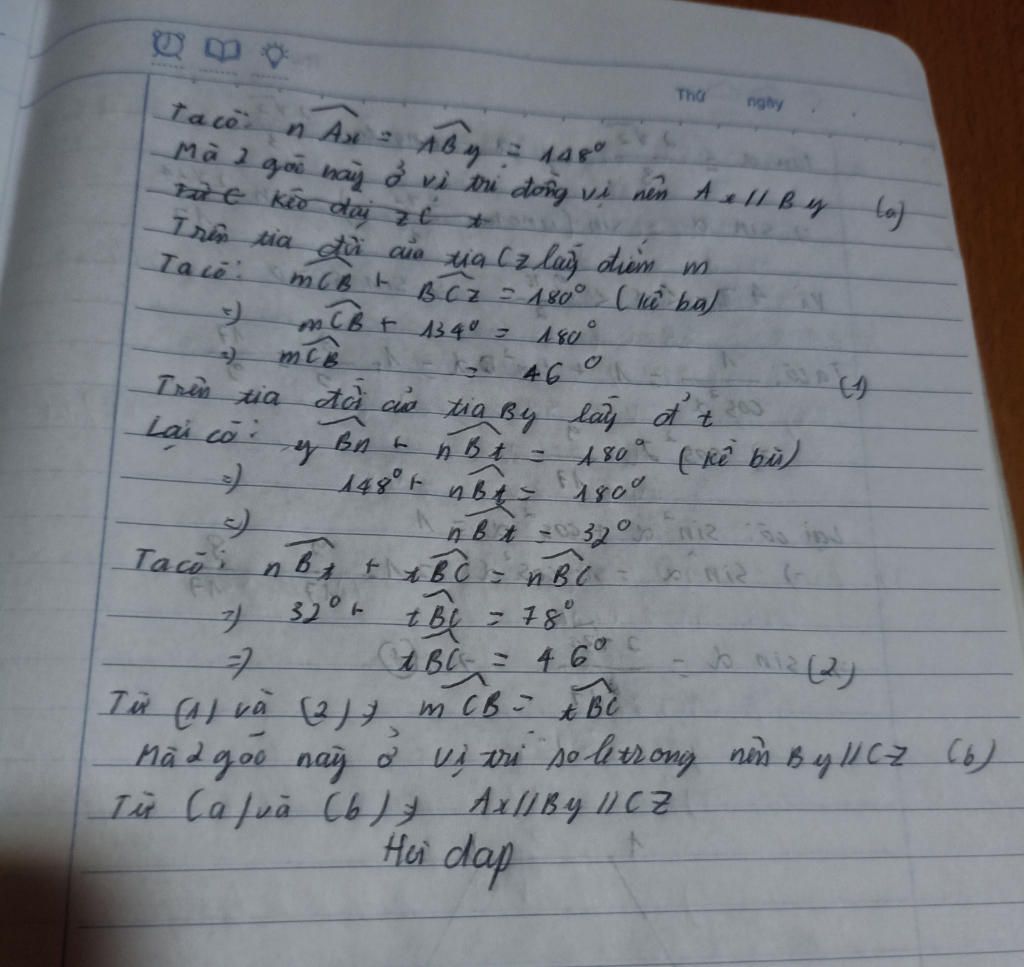 Thứ ngày
Ta có: nAx = ABy = 148°
Mà 2 góc này ở vị trí đồng vị nên Ax // By (a)
Từ C kéo dài zC t
Trên tia đối của tia Cz lấy điểm m
Ta có: mCB + BCz = 180° (kề bù)
=) mCB + 134° = 180°
=) mCB = 46° (1)
Trên tia đối của tia By lấy đ' t
Lại có: yBn + nBt = 180° (kề bù)
=) 148° + nBt = 180°
=) nBt = 32°
Ta có: nBt + tBC = nBC
=) 32° + tBC = 78°
=) tBC = 46° (2)
Từ (1) và (2) => mCB = tBC
Mà 2 góc này ở vị trí so le trong nên By // Cz (b)
Từ (a) và (b) => Ax // By // CZ
Hoi dap